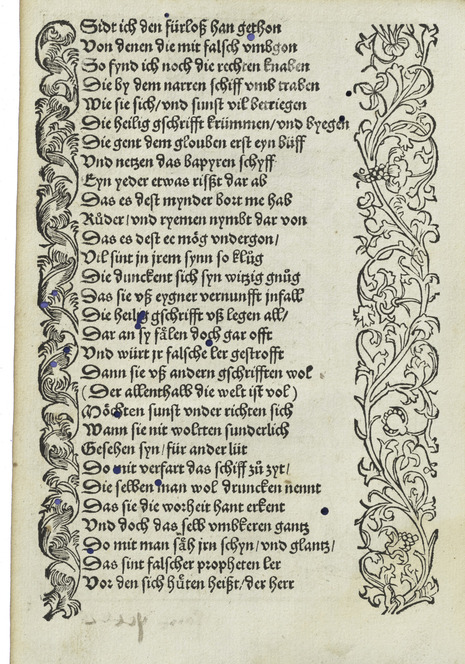 Sidt ich den fürloß han gethon
Von denen die mit falsch vmbgon
So fynd ich noch die rechten knaben
Die by dem narren schiff vmb traben
Wie sie sich/vnd sunst vil betriegen
Die heilig gschrifft krümmen/vnd byegen
Die gent dem glouben erst eyn büff
Vnd netzen das bapyren schyff
Eyn yeder etwas rißt dar ab
Das es dest mynder bort me hab
Růder/vnd ryemen nymbt dar von
Das es dest ee mög vndergon/
Vil sint in jrem synn so klůg
Die dunckent sich syn witzig gnůg
Das sie vß eygner vernunfft jnfall
Die heilig gschrifft vß legen all/
Dar an sy fälen doch gar offt
Vnd würt jr falsche ler gestrofft
Dann sie vß andern gschrifften wol
(Der allenthalb die welt ist vol)
Möchten sunst vnder richten sich
Wann sie nit wolrten sunderlich
Gesehen syn/für ander lüt
Do mit verfart das schiff zů zyt/
Die selben man wol druncken nennt
Das sie die worheit hant erkent
Vnd doch das selb vmbkeren gantz
Do mit man säh jrn schyn/vnd glantz/
Das sint falscher propheten ler
Vor den sich hůten heißt/der herr